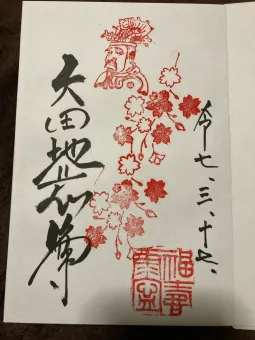 令七、三、十七、
大田地蔵尊
福壽